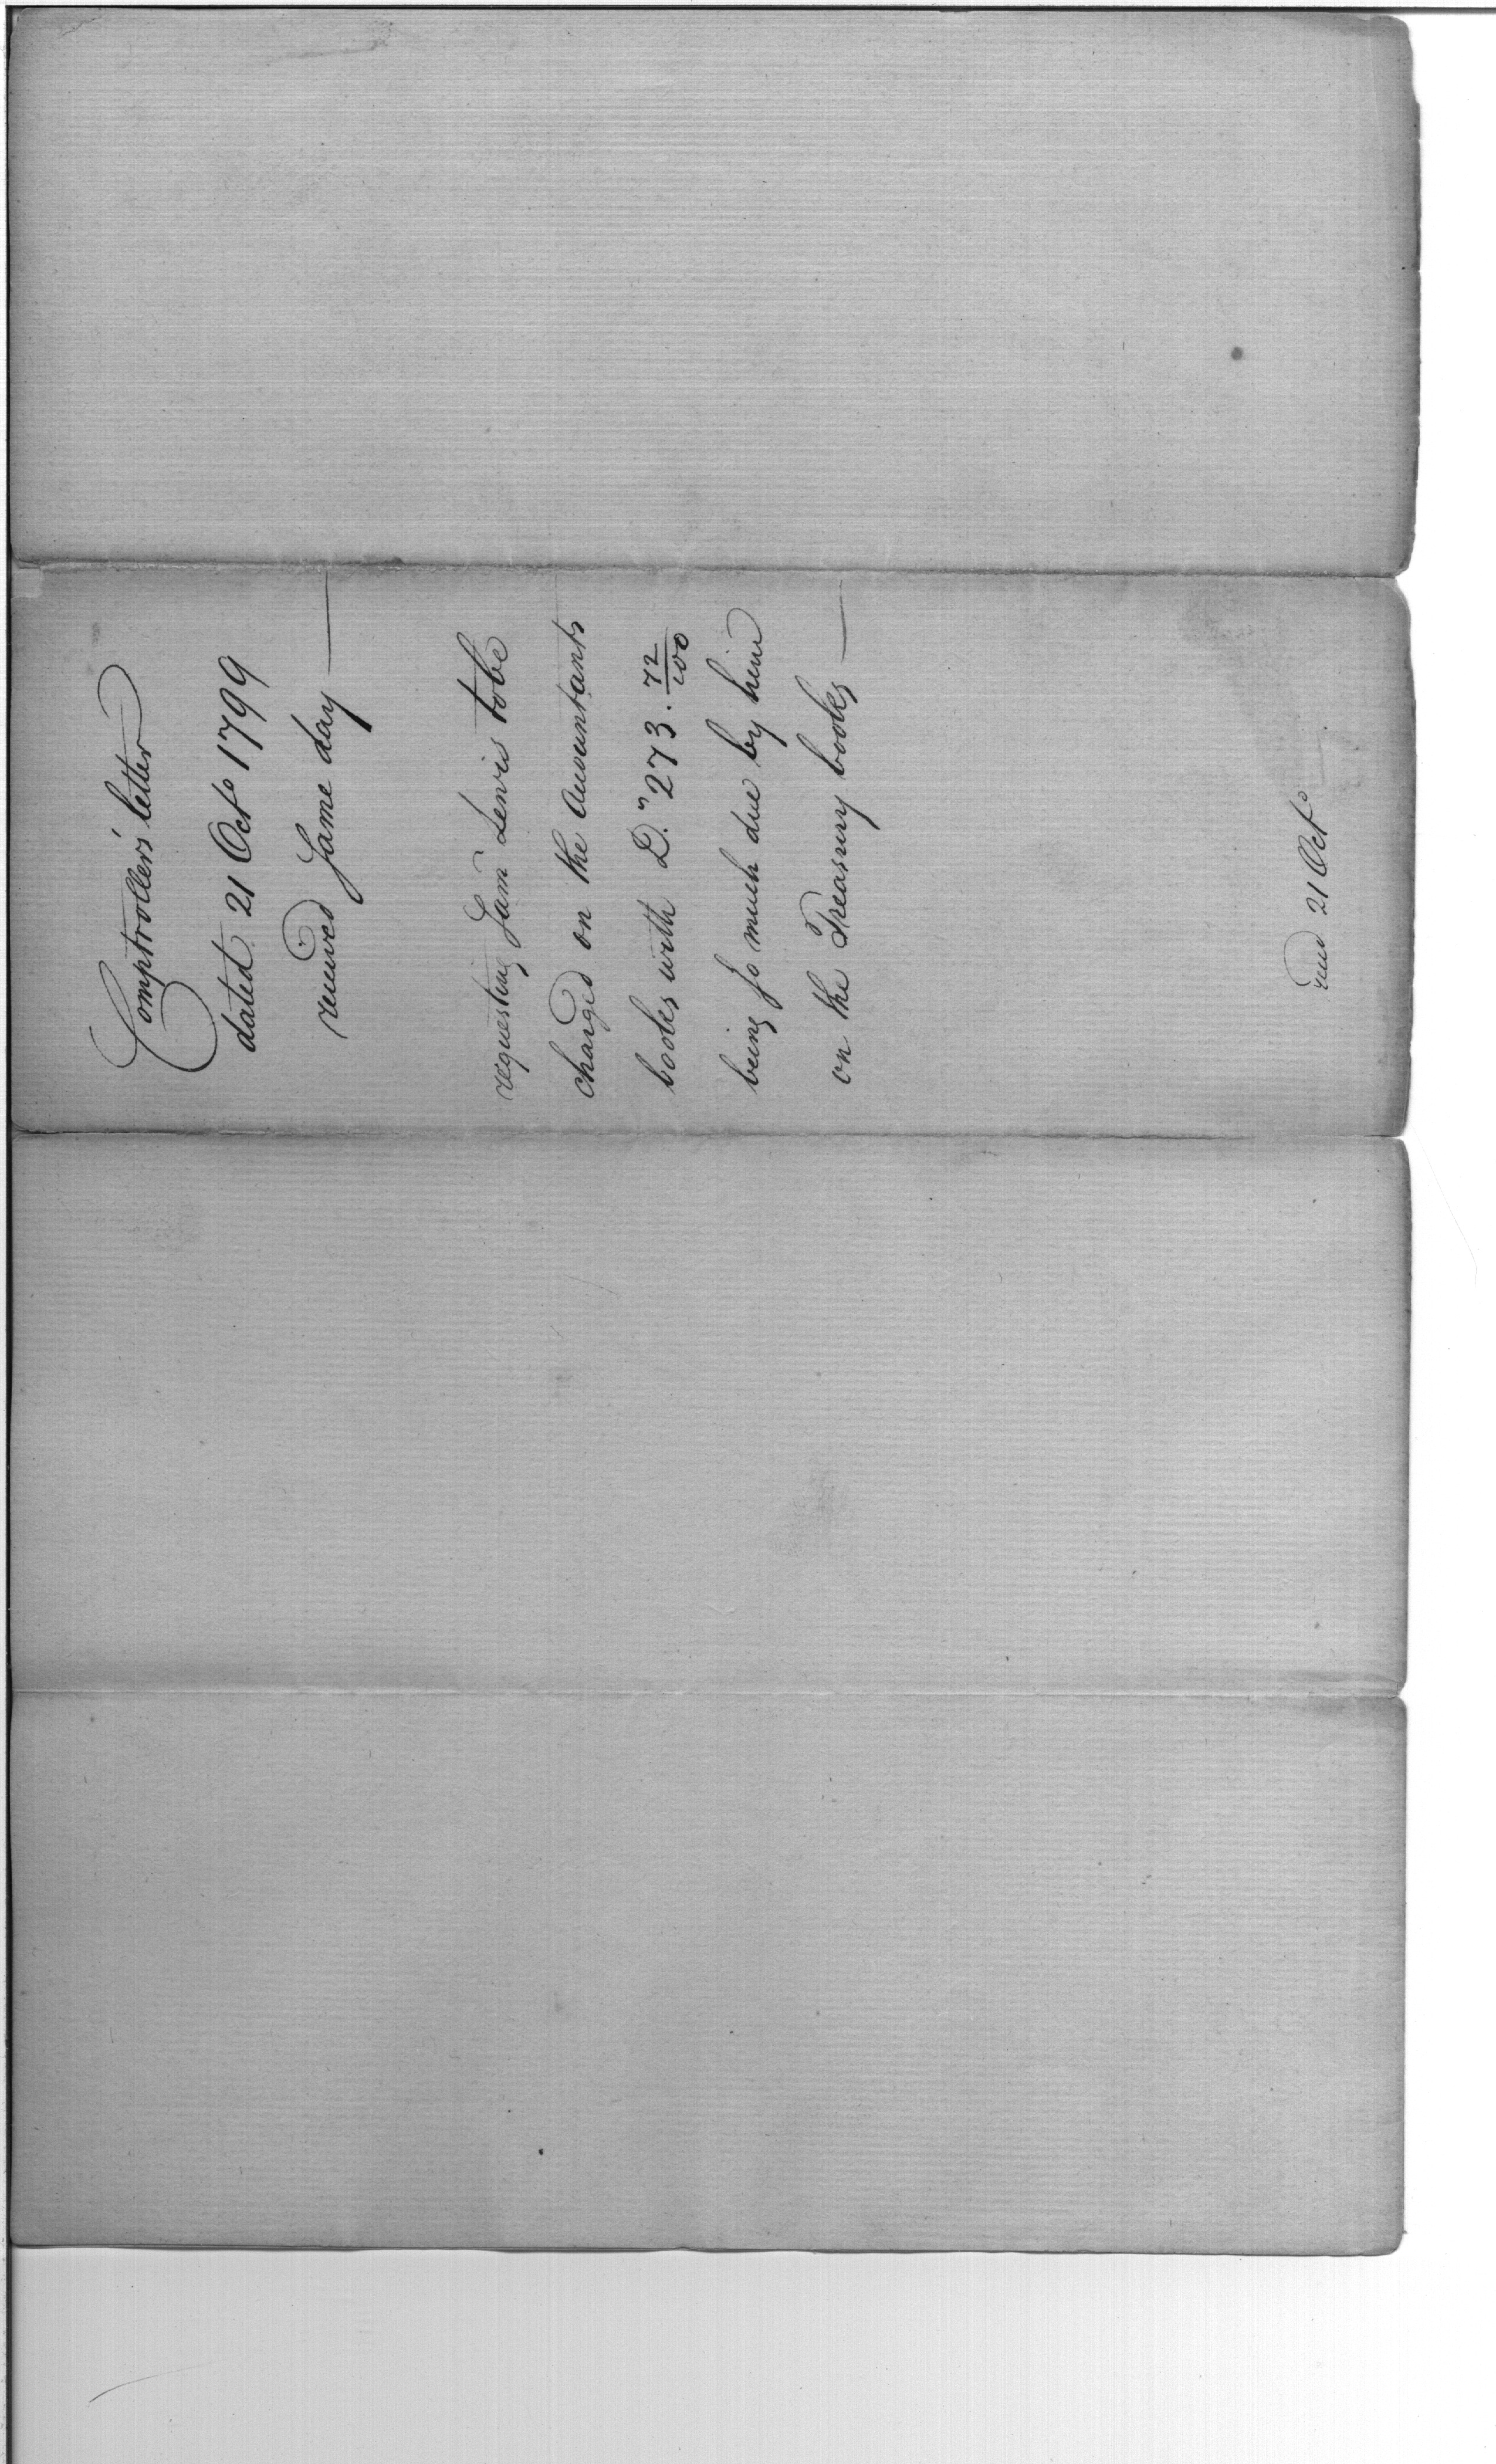 Comptroller's letter
dated 21 Octo 1799
received Same day —
requesting Sam Lewis to be
charged on the Accountants
books with D.rs 273. 72/100
being so much due by him
on the Treasury books —
recd 21 Octo